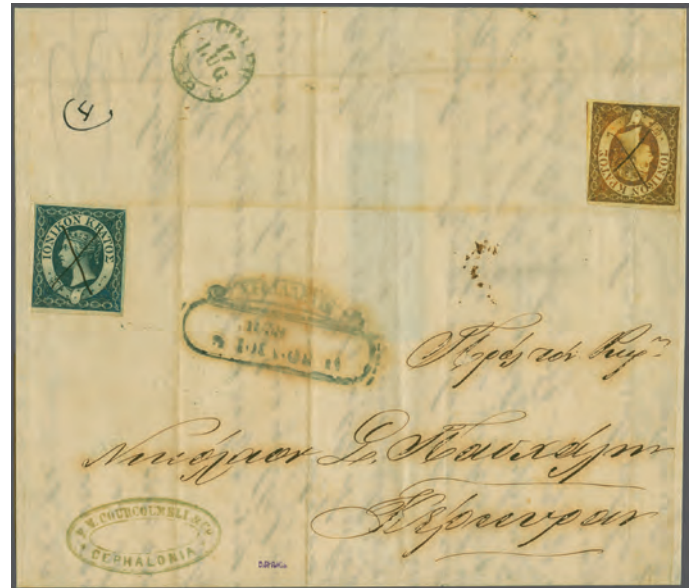 CORFU
17
LUG
(4)
ΙΟΝΙΚΟΝ ΚΡΑΤΟΣ
ΙΟΝΙΚΟΝ ΚΡΑΤΟΣ
Πρὸς τὸν Κυρ.ν
Νικόλαον Δ. Πασχάλην
Κέρκυραν
P. M. COURCOUMELI & Co
CEPHALONIA